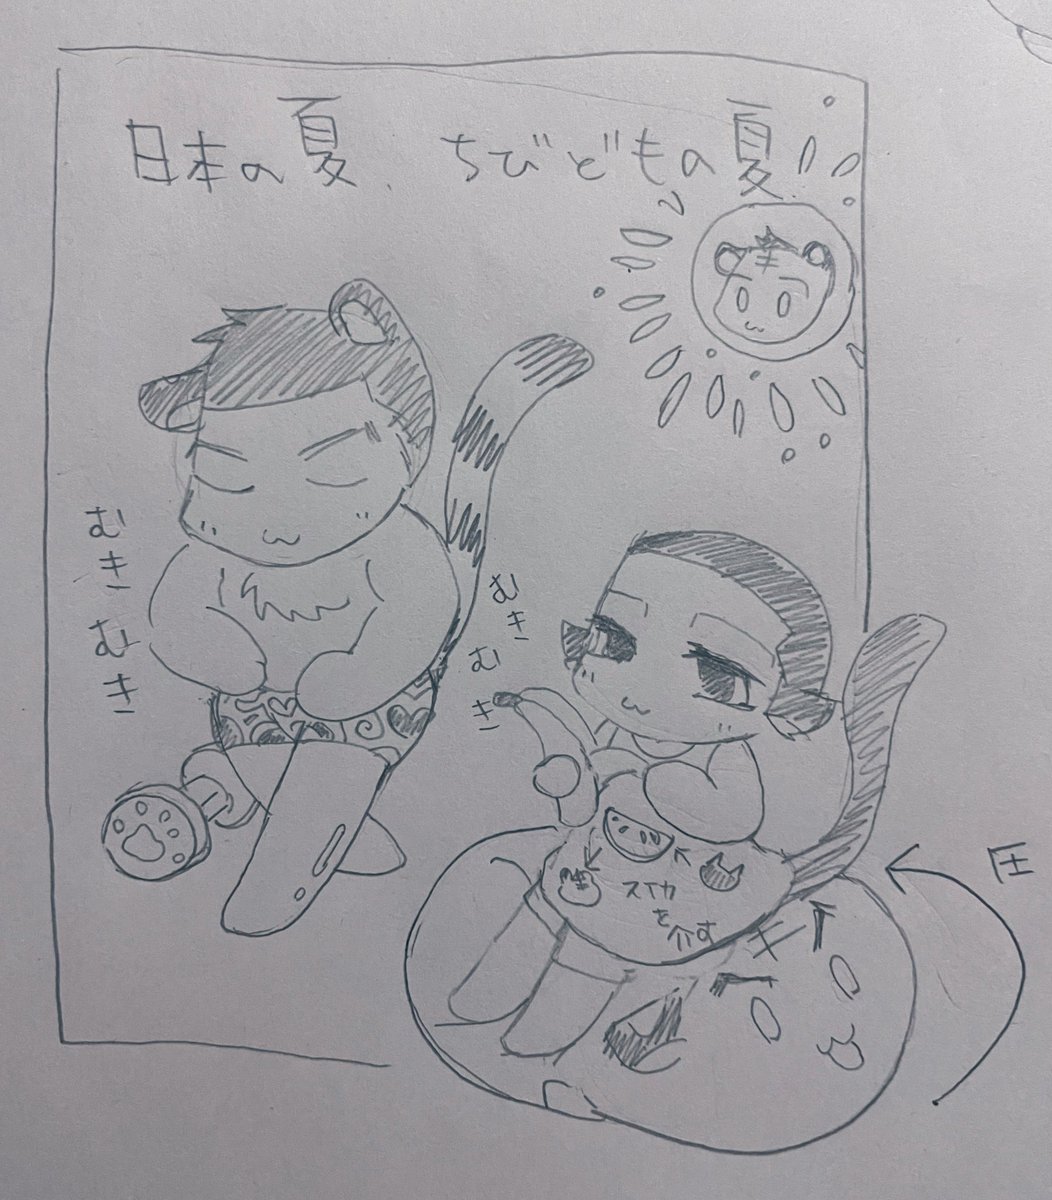 日本の夏、 ちびどもの夏
むき
むき
むき
むき
圧
スイカ
を
介す